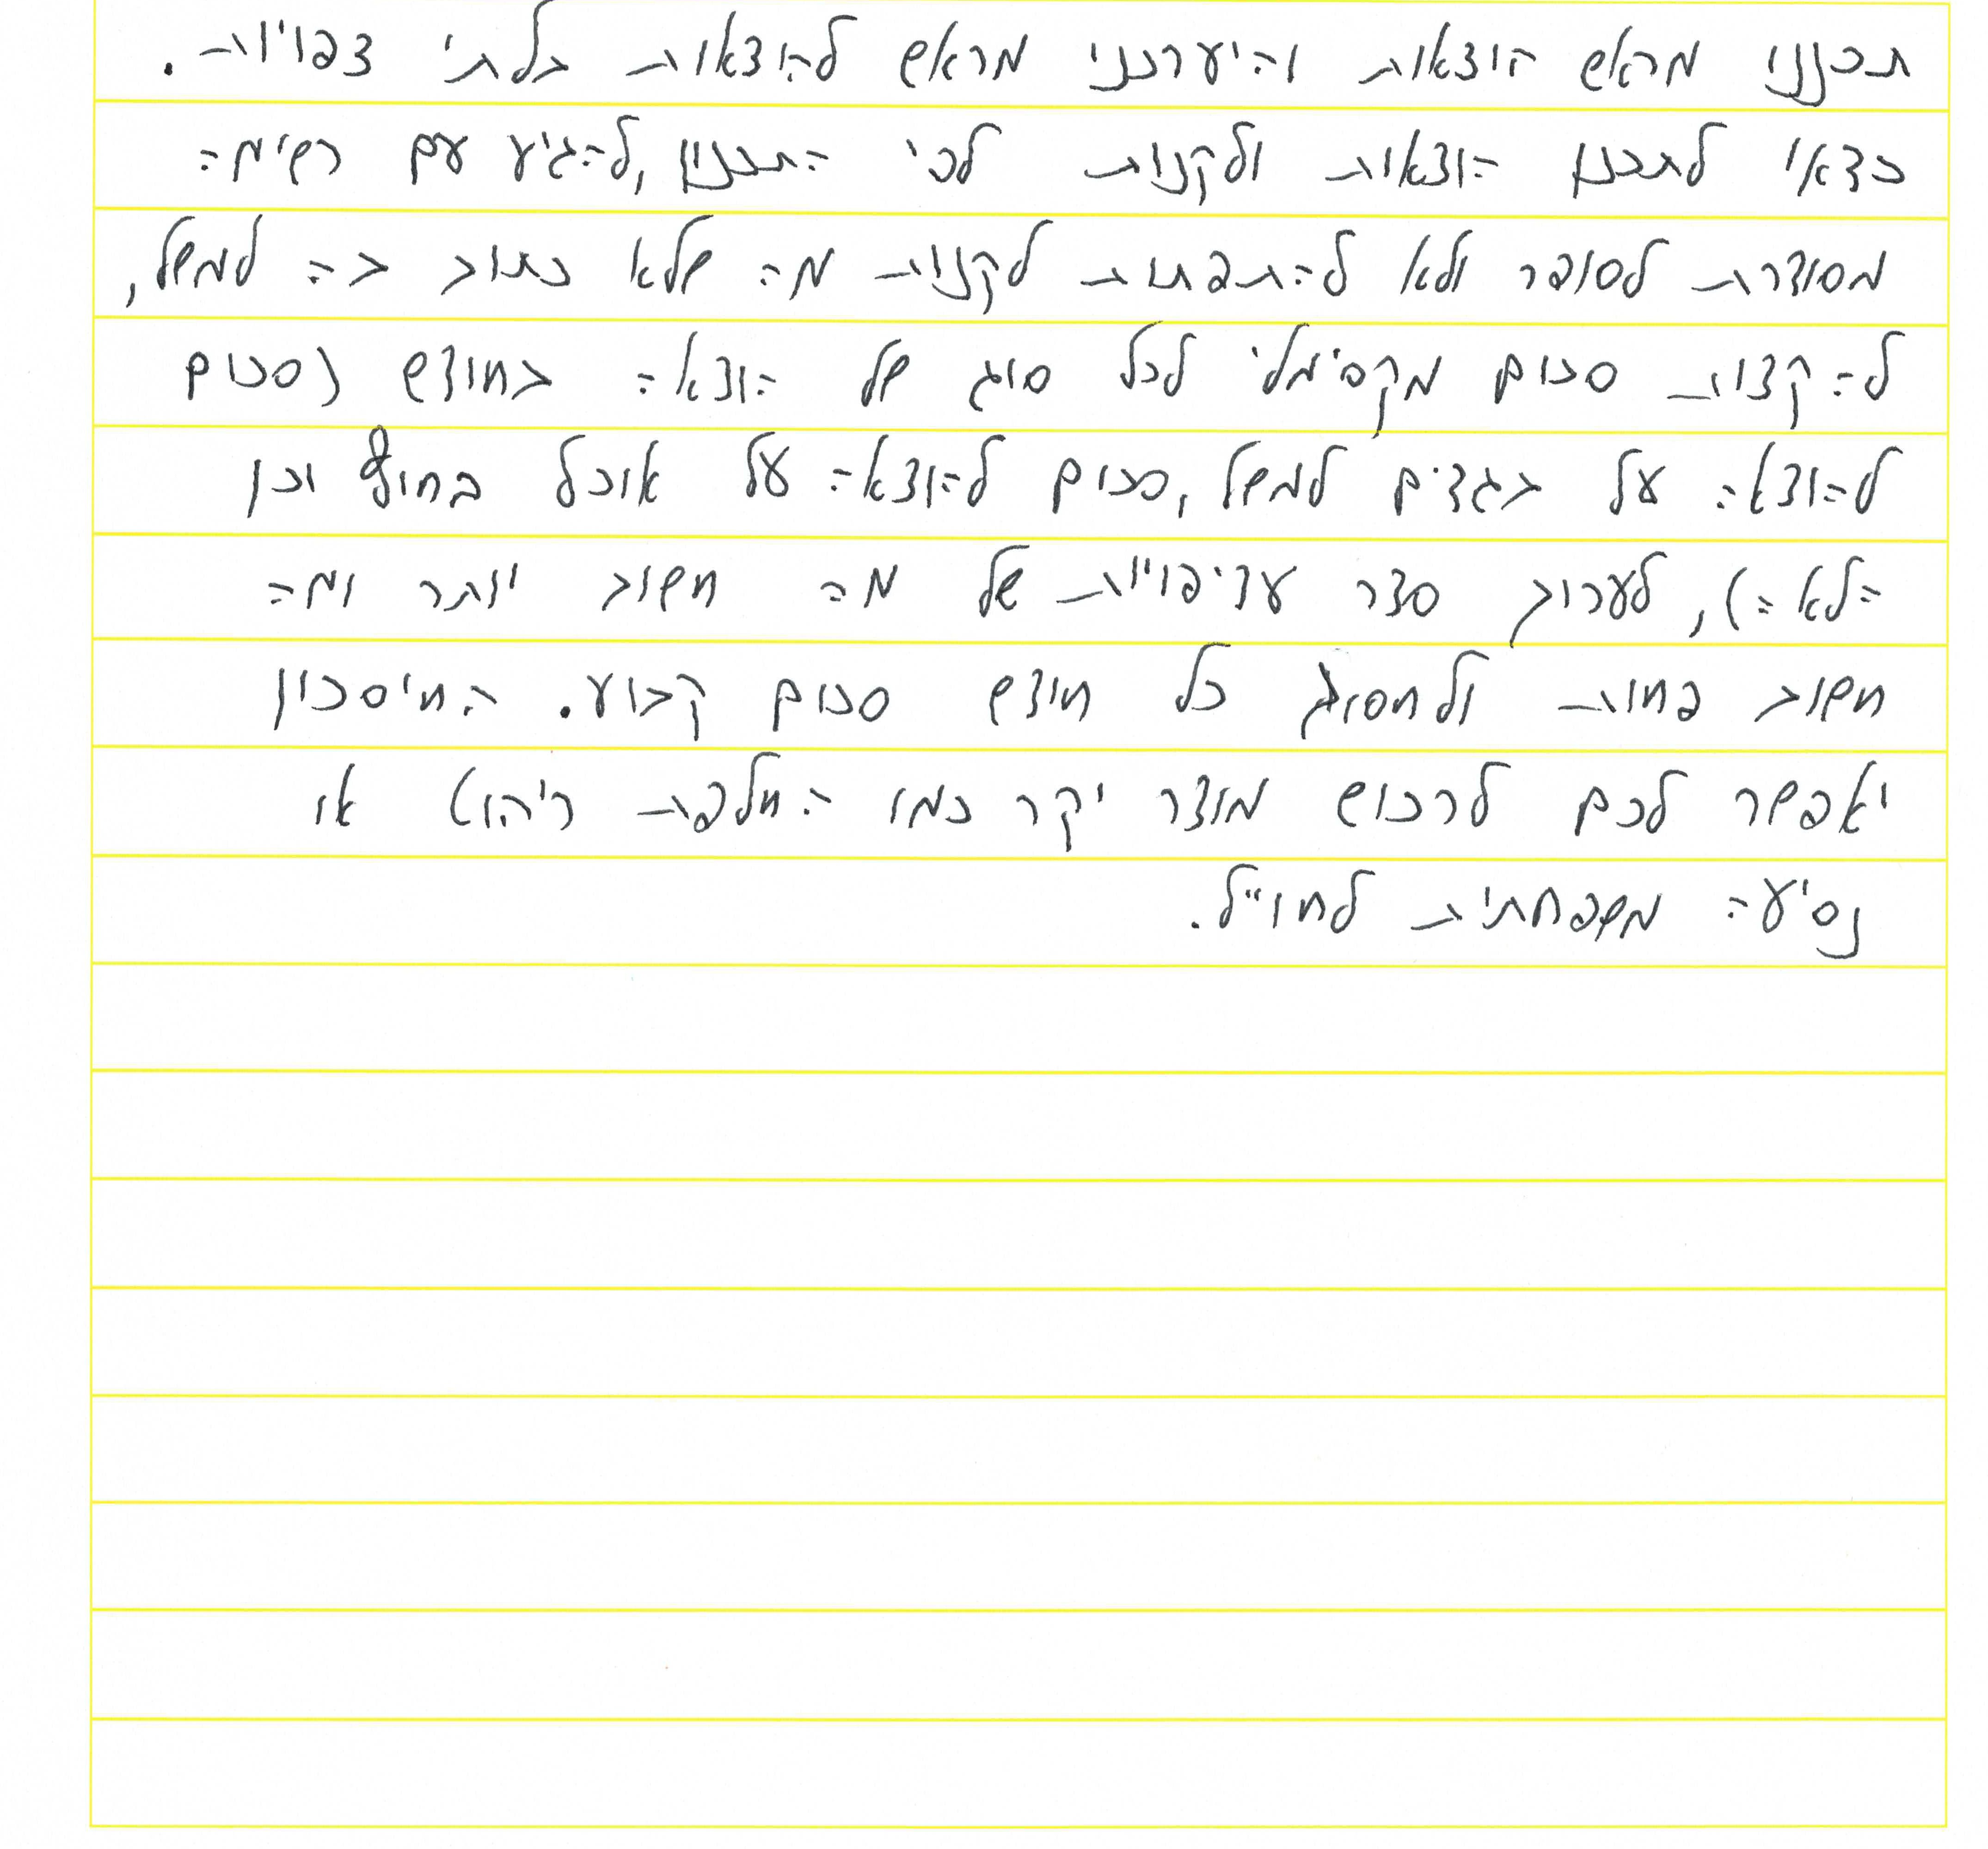 תכננו מראש הוצאות והיערכנו מראש להוצאות בלתי צפויות.
כדאי לתכנן הוצאות ולקנות לפי התכנון, להגיע עם רשימה
מסודרת לסופר ולא להתפתות לקנות מה שלא כתוב בה למשל,
להקצות סכום מקסימלי לכל סוג של הוצאה בחודש (סכום
להוצאה על בגדים למשל, סכום להוצאה על אוכל בחוץ וכן
הלאה), לערוך סדר עדיפויות של מה חשוב יותר ומה
חשוב פחות ולחסוך כל חודש סכום קבוע. החיסכון
יאפשר לכם לרכוש מוצר יקר כמו החלפת ריהוט או
נסיעה משפחתית לחו״ל.